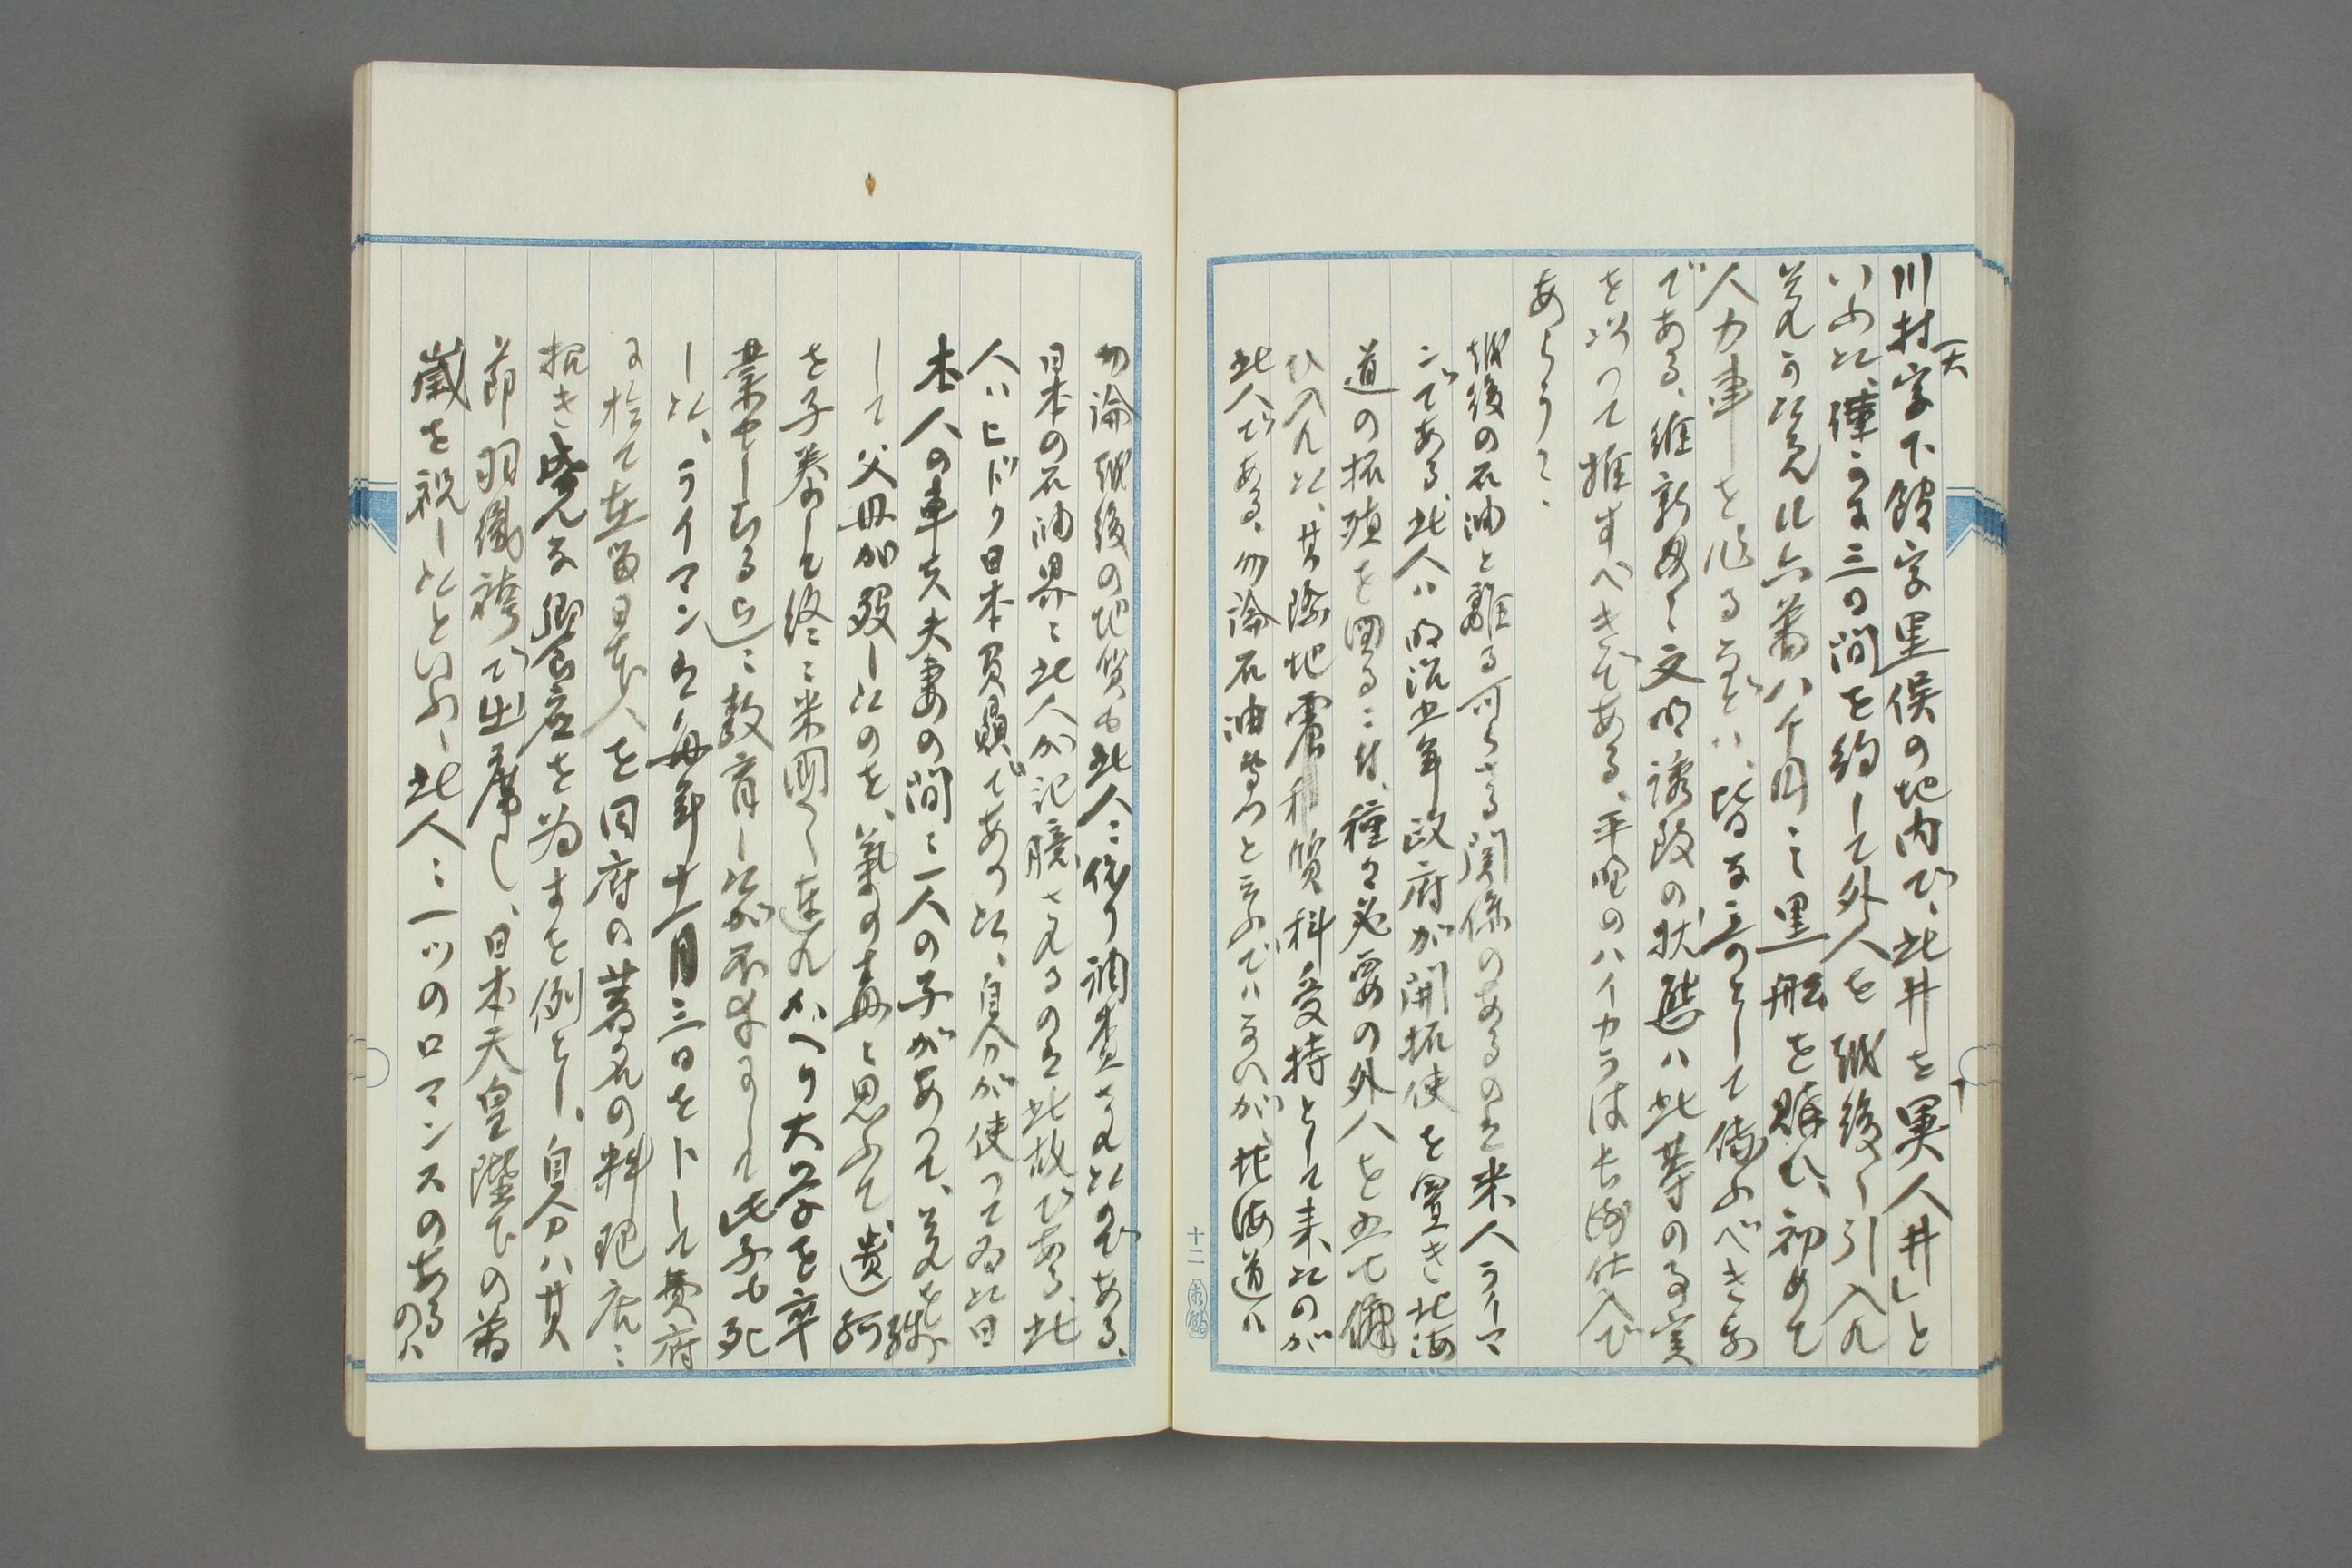 川村字下館字里俣の地内で、此井を「異人井」と
天
いふた、僅かに三日間を約して外人を越後へ引入れ
それから又六番八千円にて黒船を購ひ、初めて
人力車を作るなどハ、皆な三のとして傳ふべき事
である、維新安々文明誘致の状態ハ此等の事実
を以つて推すべきである、平野のハイカラは長崎仕入で
あらうか、
越後の石油と離る可らざる関係のあるのは米人ライマ
ンである、此人ハ明治五年政府が開拓使を置き北海
道の拓殖を図るに付、種々必要の外人を五七傭
ひ入れた、其際地震和質科受持として来たのが
此人である、勿論石油専門と云ふでハないが、北海道ハ
勿論越後の地質も此人に依り調査されたのである、
日本の石油界に此人が記臆さるゝのは此故である、此
人ハヒドク日本贔屓であつた、自分が使つて居た日
本人の車夫夫妻の間に一人の子があつて、それを残
して父母が歿したのを、氣の毒に思ふて、遺孤
を子養して終に米国へ連れかへり大学を卒
業せしむる迄に教育したが不幸にして此子も死
した、ライマンは毎年十一月三日を卜して費府
に於て在留日本人を同府の著名の料理店に
招き盛んな饗応を為すを例とし、自分ハ其
節羽織袴で出席し、日本天皇陛下の萬
歳を祝したといふ、此人に一ツのロマンスのあるのハ
十二